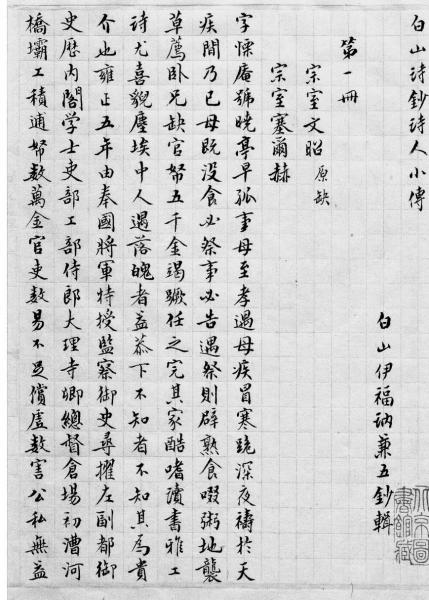 白山詩鈔詩人小傳
白山伊福訥兼五鈔輯
第一冊
宗室文昭 原缺
宗室塞爾赫
字慄庵號曉亭早孤事母至孝遇母疾冒寒跪深夜禱於天
疾間乃已母既没食必祭事必告遇祭則辟熟食啜粥地襲
草薦臥兄缺官帑五千金竭蹶任之完其家酷嗜讀書雅工
詩尤喜貌塵埃中人遇落魄者益恭下不知者不知其為貴
介也雍正五年由奉國將軍特授監察御史尋擢左副都御
史歷内閣学士吏部工部侍郎大理寺卿總督倉場初漕河
橋壩工積逋帑數萬金官吏數易不足償虛數害公私無益